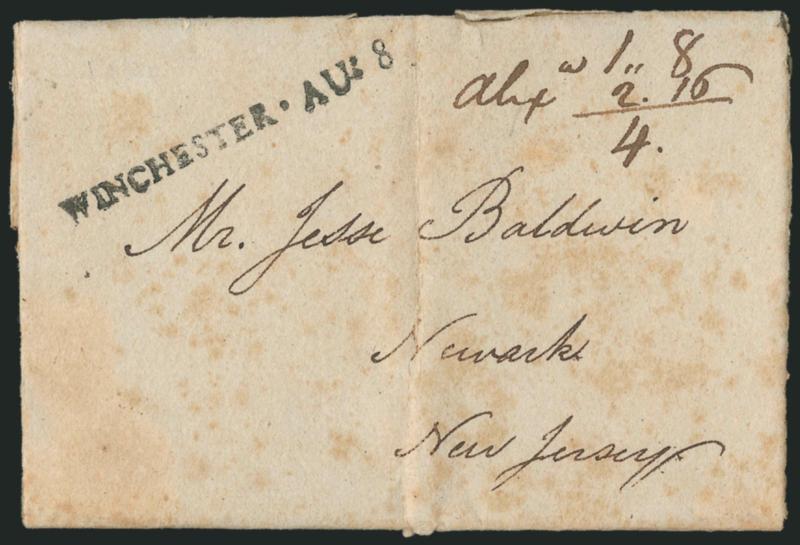 WINCHESTER · AUG 8
Alexa 1,, 8
2. 16
4.
Mr. Jesse Baldwin
Newark
New Jersey